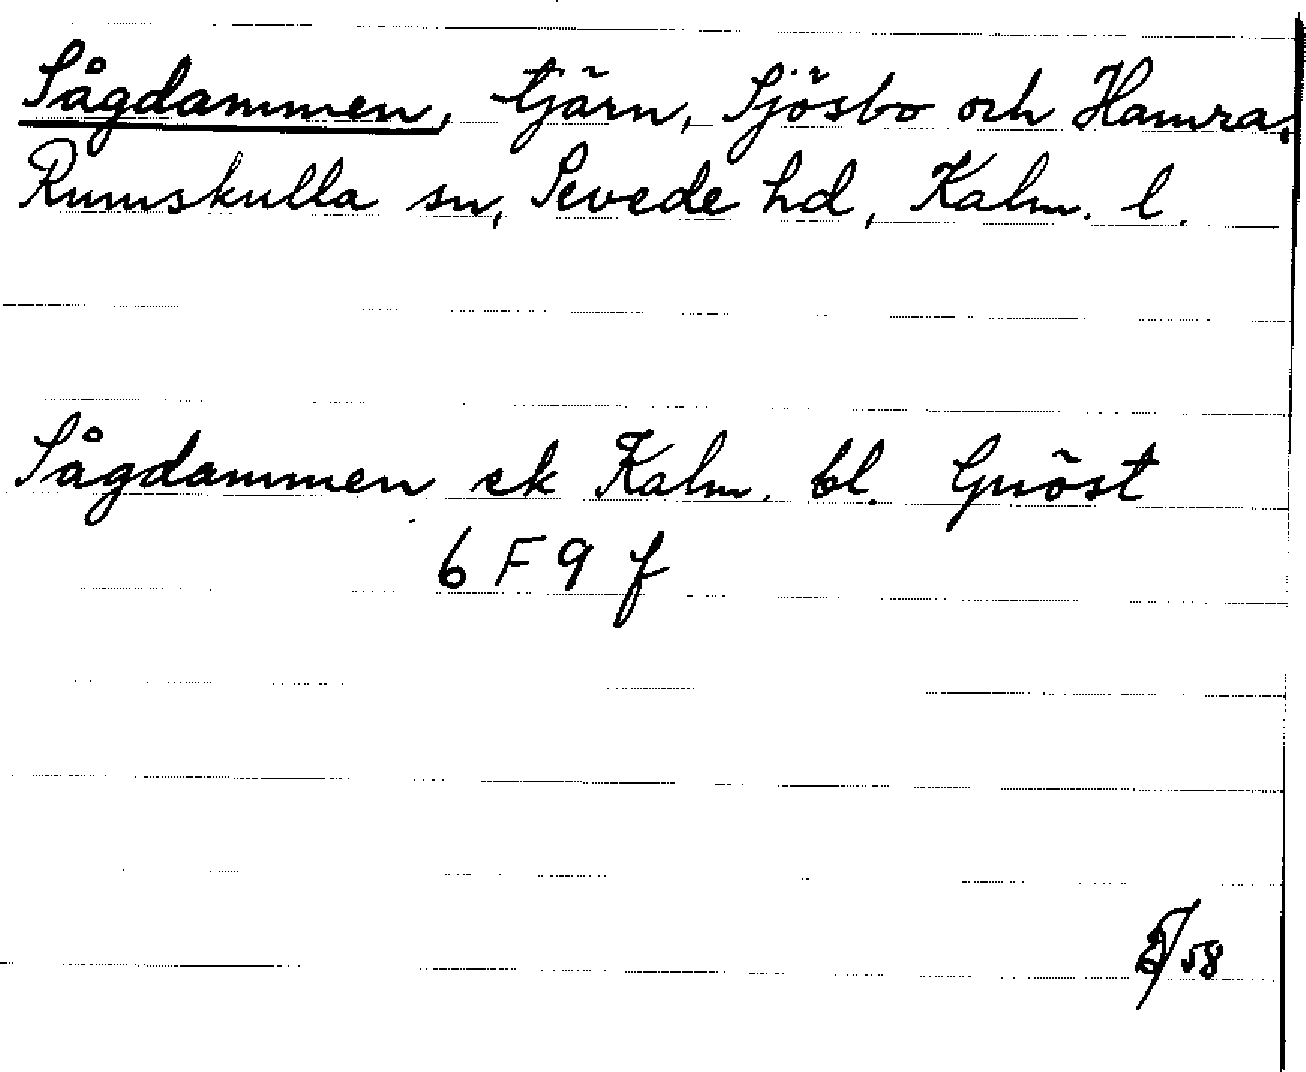 Sågdammen, tjärn, Sjösbo och Hamra,
Rumskulla sn, Sevede hd, Kalm. l.
Sågdammen ek Kalm. bl. Gnöst
6 F 9 f
/58